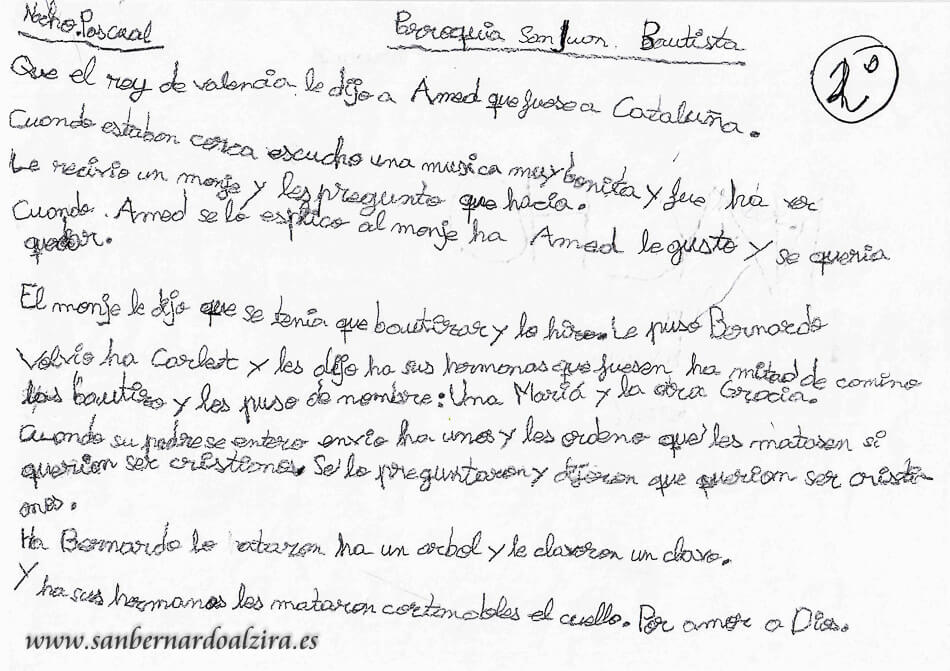 Nacho Pascual
Parroquia San Juan Bautista
2º
Que el rey de valencia le dijo a Amed que fuese a Cataluña.
Cuando estaban cerca escucho una musica muy bonita y fue ha ver
Le recivio un monje y les pregunto que hacia.
Cuando Amed se lo esplico al monje ha Amed le gusto y se queria
quedar.
El monje le dijo que se tenia que bautizar y lo hizo. Le puso Bernardo
Volvio ha Carlet y les dijo ha sus hermanas que fuesen ha mitad de camino
las bautizo y les puso de nombre: Una Mariá y la otra Gracia.
Cuando su padre se entero envio ha unos y les ordeno que les matasen si
querian ser cristianos. Se lo preguntaron y dijeron que querian ser cristi-
anos.
Ha Bernardo lo ataron ha un arbol y le clavaron un clavo.
Y ha sus hermanas les mataron cortandoles el cuello. Por amor a Dios.
www.sanbernardoalzira.es